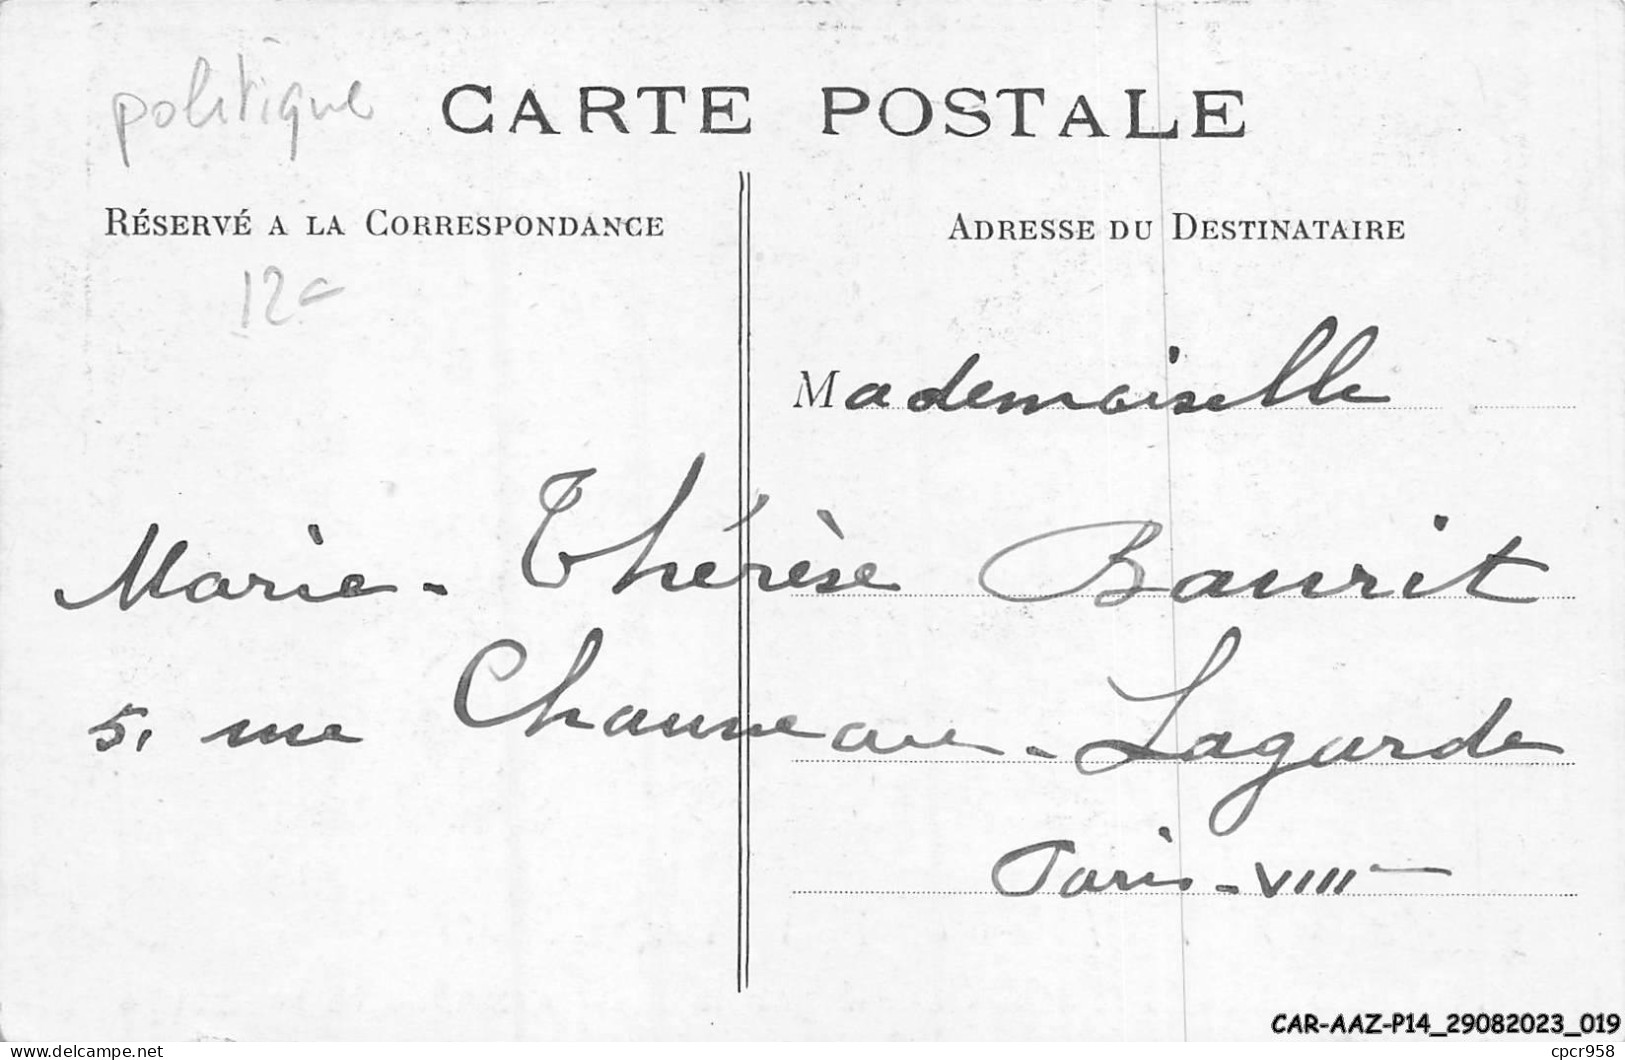 politique
CARTE POSTALE
RÉSERVÉ A LA CORRESPONDANCE
ADRESSE DU DESTINATAIRE
12
Mademoiselle
Marie-Thérèse Baurit
5, rue Chauveau-Lagarde
Paris-VIII
CAR-AAZ-P14_29082023_019
cpcr958